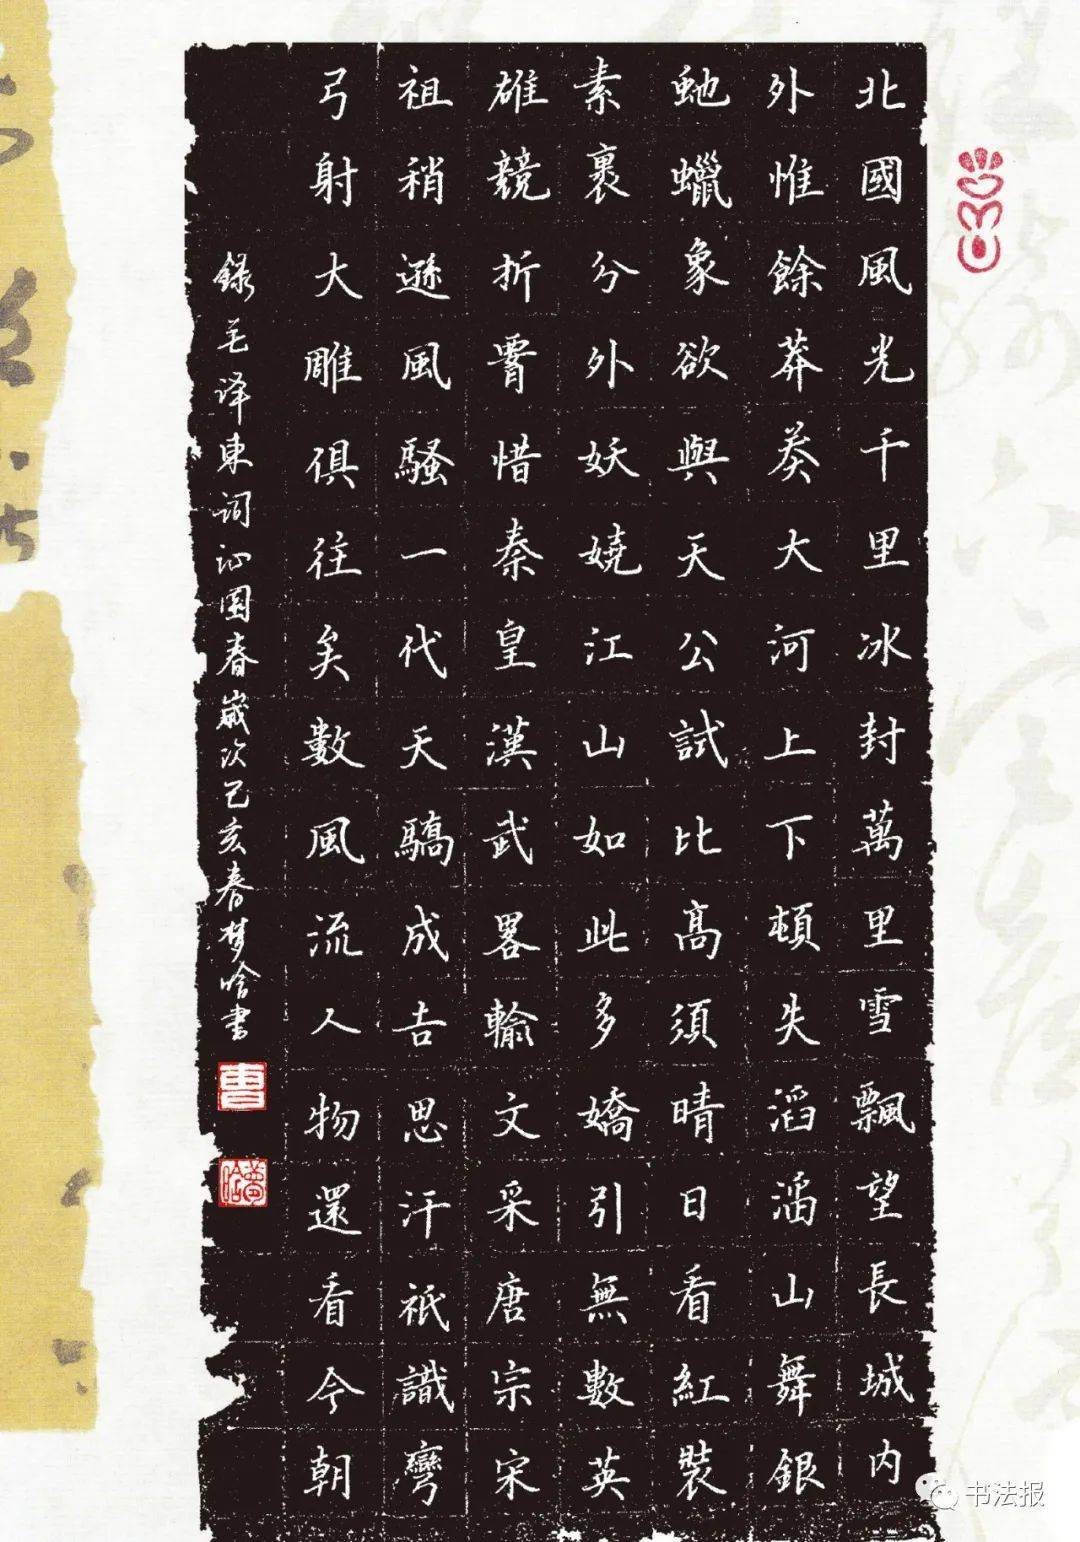 北國風光千里冰封萬里雪飄望長城内
外惟餘莽莽大河上下頓失滔滔山舞銀
虵蠟象欲與天公試比高須晴日看紅裝
素裹分外妖嬈江山如此多嬌引無數英
雄競折惜秦皇漢武畧輸文采唐宗宋
祖稍遜風騷一代天驕成吉思汗祇識彎
弓射大雕俱往矣數風流人物還看今朝
錄毛泽東詞沁園春歲次己亥春梦書
曹
书法报